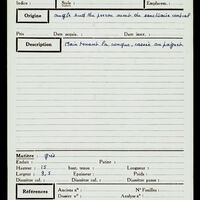 Indice : Série : Emplacem. :
Origine angle sud du perron
Prix Date acquis. : Date inscr. :
Description Main tenant la conque, cassée au poignet
Matière : grès
Enduit : Patine :
Hauteur : 15 haut. tenon : Longueur :
Largeur : 9,5 Epaisseur : Poids :
Diamètre col. : Diamètre panse :
Références Anciens n° : N° Fouilles :
Dossier n° : Analyse n° :